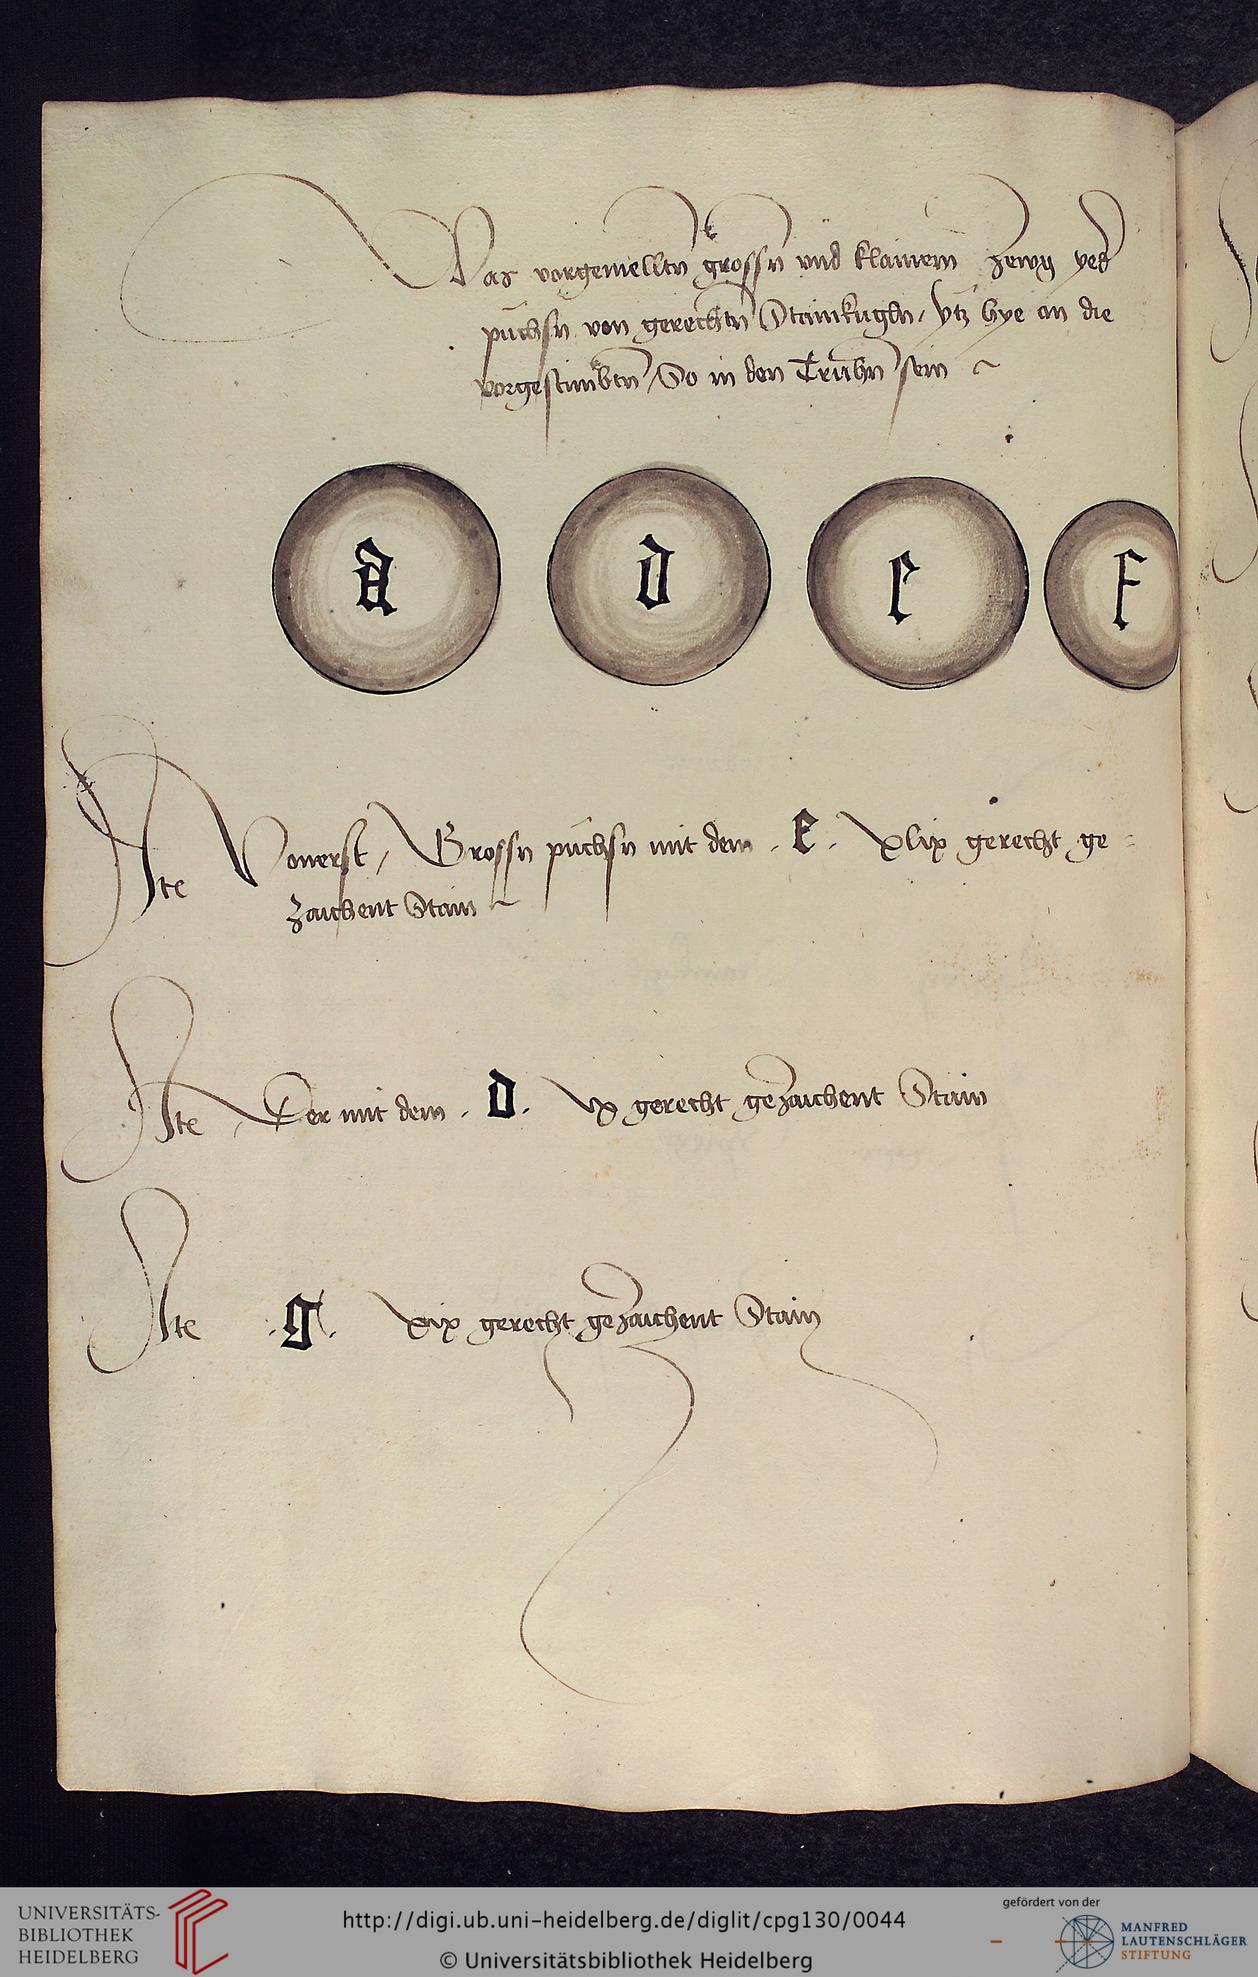 Was vorgemelltn grossn und klainern zewg yed
púchsn von gerechtn Stainkugln, ytz hye an die
vorgestimbtn, So in den Truhn sein ~
a d e f
Ite Vonerst, Grossn púchsn mit dem . e . xlix gerecht ge-
zaichent Stain
Ite Der mit dem . d . xx gerecht gezaichent Stain
Ite . g . xix gerecht gezaichent Stain
UNIVERSITÄTS-
BIBLIOTHEK
HEIDELBERG
http://digi.ub.uni-heidelberg.de/diglit/cpg130/0044
© Universitätsbibliothek Heidelberg
gefördert von der
MANFRED
LAUTENSCHLÄGER
STIFTUNG